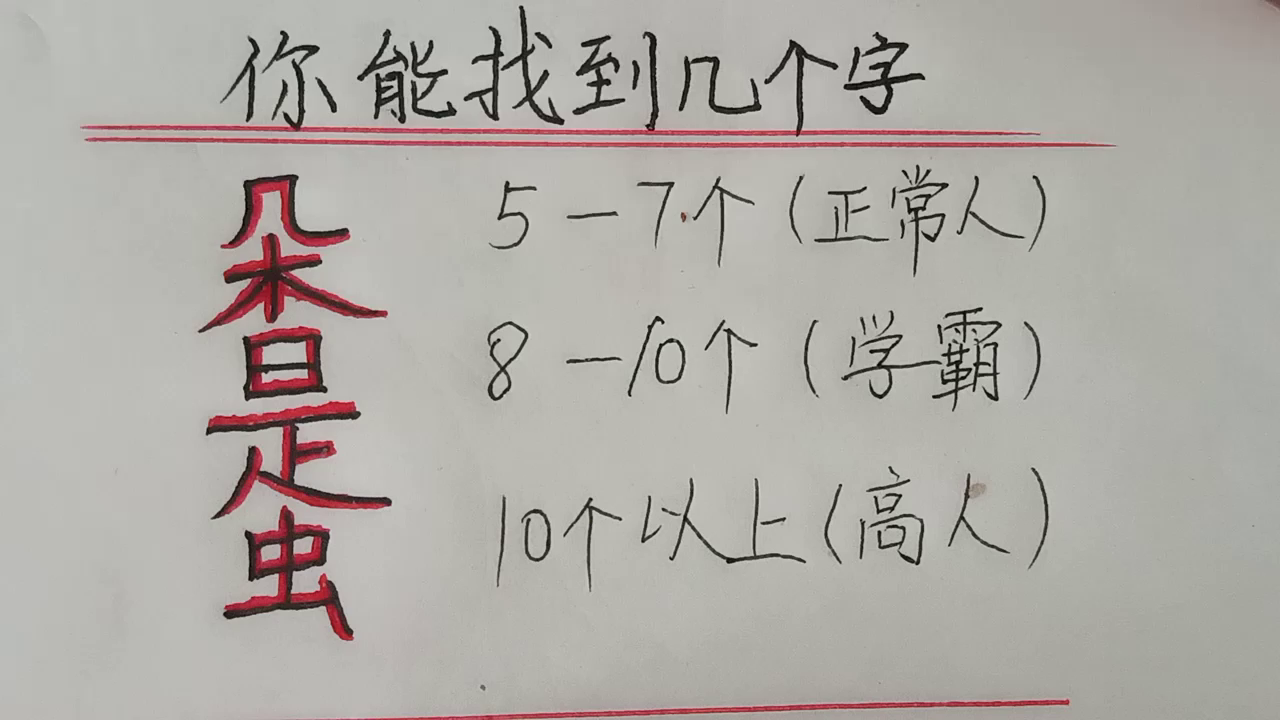 你能找到几个字
朵是虫
5—7个(正常人)
8—10个(学霸)
10个以上(高人)